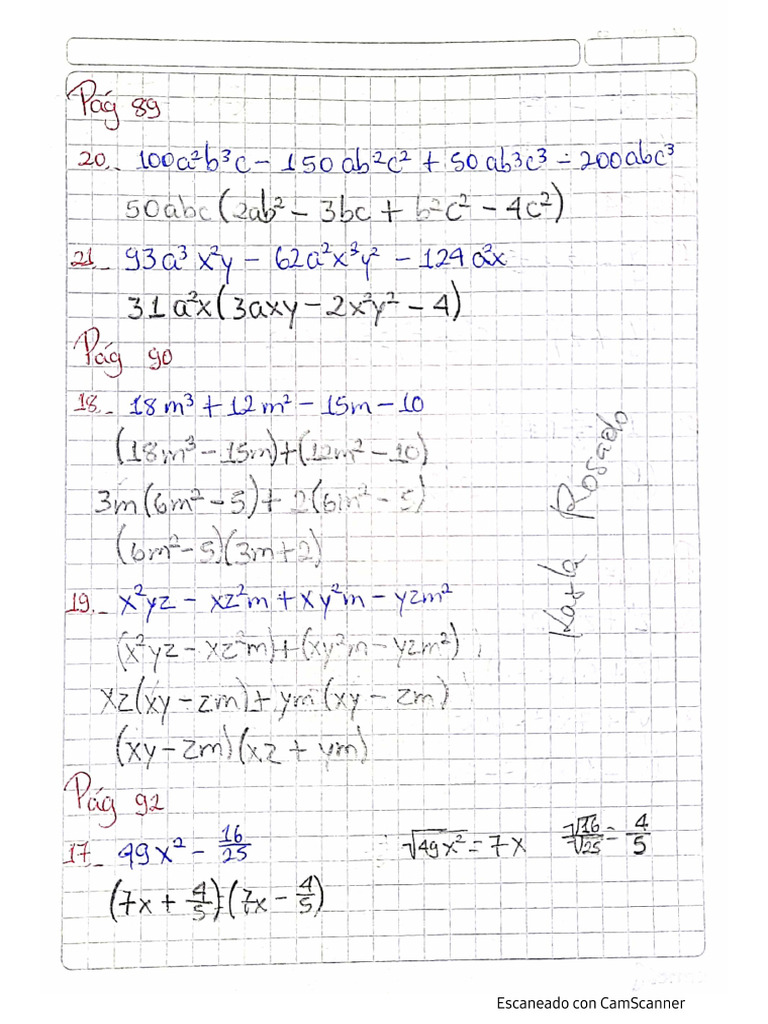 Pág 89
20.- 100a²b³c - 150ab²c² + 50ab³c³ - 200abc³
50abc(2ab² - 3bc + b²c² - 4c²)
21.- 93a³x²y - 62a²x³y² - 124a²x
31a²x(3axy - 2x²y² - 4)
Pág 90
18.- 18m³ + 12m² - 15m - 10
(18m³ - 15m) + (12m² - 10)
3m(6m² - 5) + 2(6m² - 5)
(6m² - 5)(3m + 2)
Karla Rosado
19.- x²yz - xz²m + xy²m - yzm²
(x²yz - xz²m) + (xy²m - yzm²)
xz(xy - zm) + ym(xy - zm)
(xy - zm)(xz + ym)
Pág 92
17.- 49x² - 16/25 √49x² = 7x √16/√25 = 4/5
(7x + 4/5)(7x - 4/5)
Escaneado con CamScanner